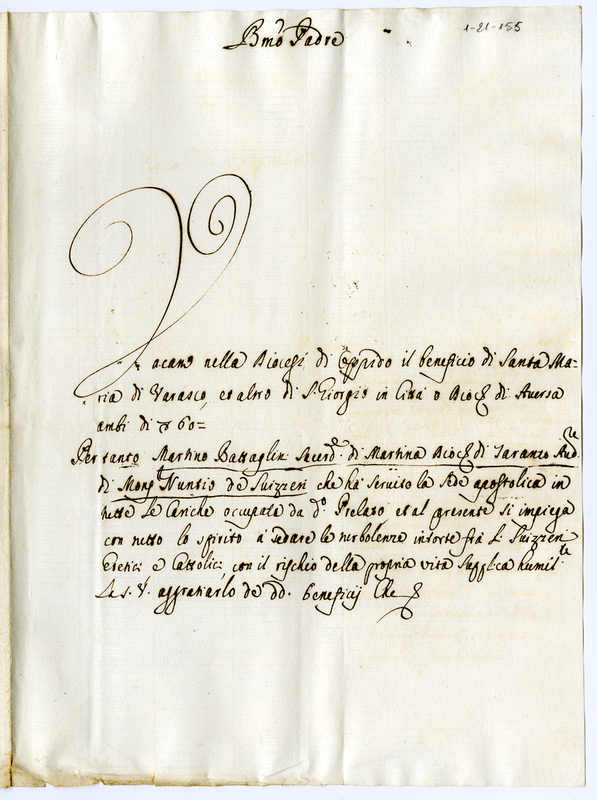 1-21-155
Bmo Padre
Vacano nella Diocesi di Oppido il beneficio di Santa Ma=
ria di Varasco, et altro di S. Giorgio in Città o Dioc. di Aversa
ambi di 60=
Per tanto Martino Battaglini Sacerde. di Martina Dioc. di Taranto Audre
di Monsr Nuntio de Suizzeri che hà servito la Sede apostolica in
tutte le Cariche occupate da do. Prelato et al presente si impiega
con tutto lo spirito à sedare le turbolenze insorte frà li Suizzeri
Eretici e Cattolici con il rischio della propria vita supplica humilte
La S. V. aggratiarlo de dd. beneficij Che